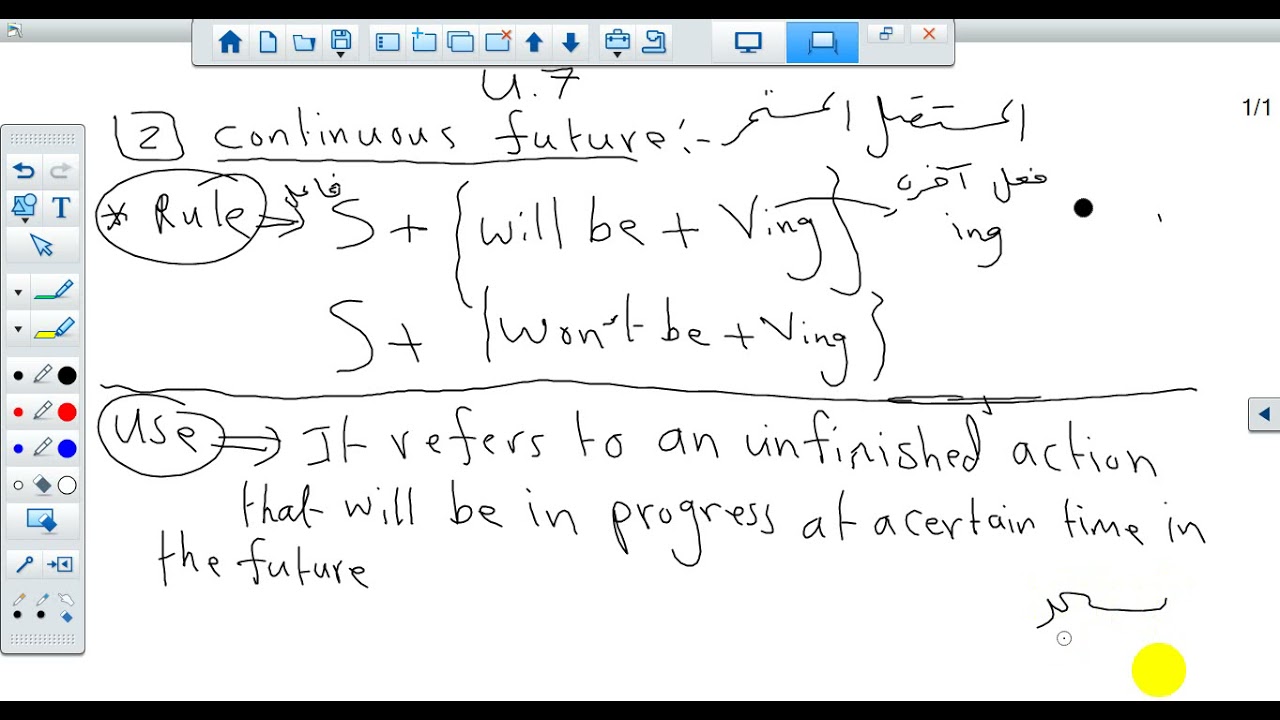 U.7
1/1
[2] continuous future:- المستقبل المستمر
* Rule → فاعل S + { will be + Ving } فعل آخره ing
S + { won't be + Ving }
Use → It refers to an unfinished action
that will be in progress at a certain time in
the future